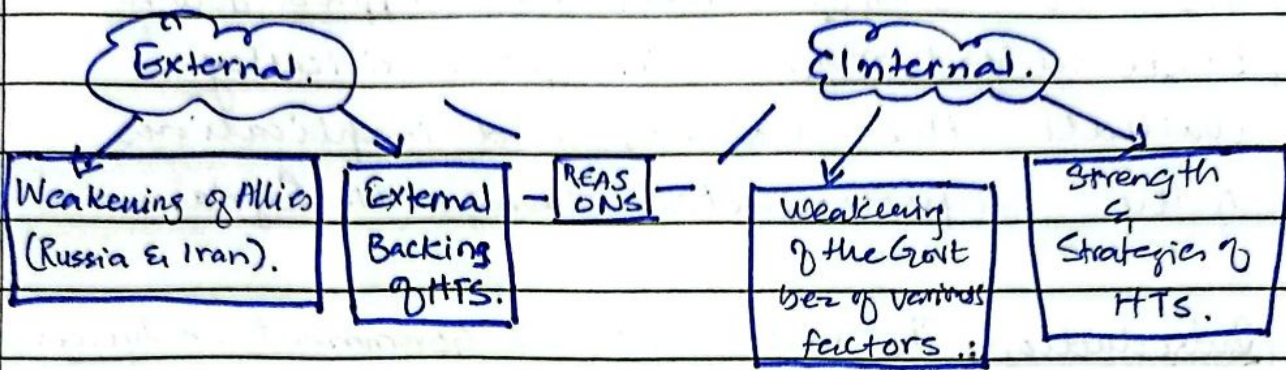 External.
Internal.
Weakening of Allies
(Russia & Iran).
External
Backing
of HTS.
REAS
ONS
Weakening
of the Govt
bez of various
factors .:
Strength
&
Strategies of
HTS.